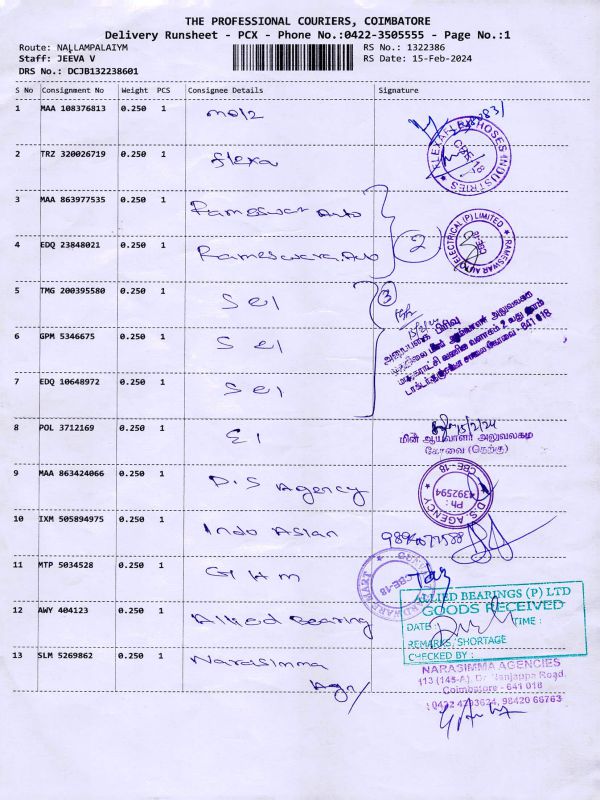 THE PROFESSIONAL COURIERS, COIMBATORE
Delivery Runsheet - PCX - Phone No.:0422-3505555 - Page No.:1
Route: NALLAMPALAIYM
RS No.: 1322386
Staff: JEEVA V
RS Date: 15-Feb-2024
DRS No.: DCJB132238601
S No Consignment No Weight PCS Consignee Details Signature
1 MAA 108376813 0.250 1
2 TRZ 320026719 0.250 1 flexa
3 MAA 863977535 0.250 1 Rameswar Auto
4 EDQ 23848021 0.250 1 Rameswara Auto 2
5 TMG 200395580 0.250 1 SEI 3
6 GPM 5346675 0.250 1 SEI
7 EDQ 10648972 0.250 1 SEI
8 POL 3712169 0.250 1 EI 15/2/24
கோவை (தெற்கு)
9 MAA 863424066 0.250 1 D.S Agency
D.S. AGENCY CBE-18 Ph : 4392594
10 IXM 505894975 0.250 1 Indo Asian
11 MTP 5034528 0.250 1 GHM
12 AWY 404123 0.250 1 Allied Bearing
ALLIED BEARINGS (P) LTD
GOODS RECEIVED
DATE : TIME :
REMARKS, SHORTAGE
CHECKED BY :
13 SLM 5269862 0.250 1 Narasimma
Agn/
NARASIMMA AGENCIES
113 (145-A), Dr. Nanjappa Road,
Coimbatore - 641 018
0422 4393624, 98420 66763